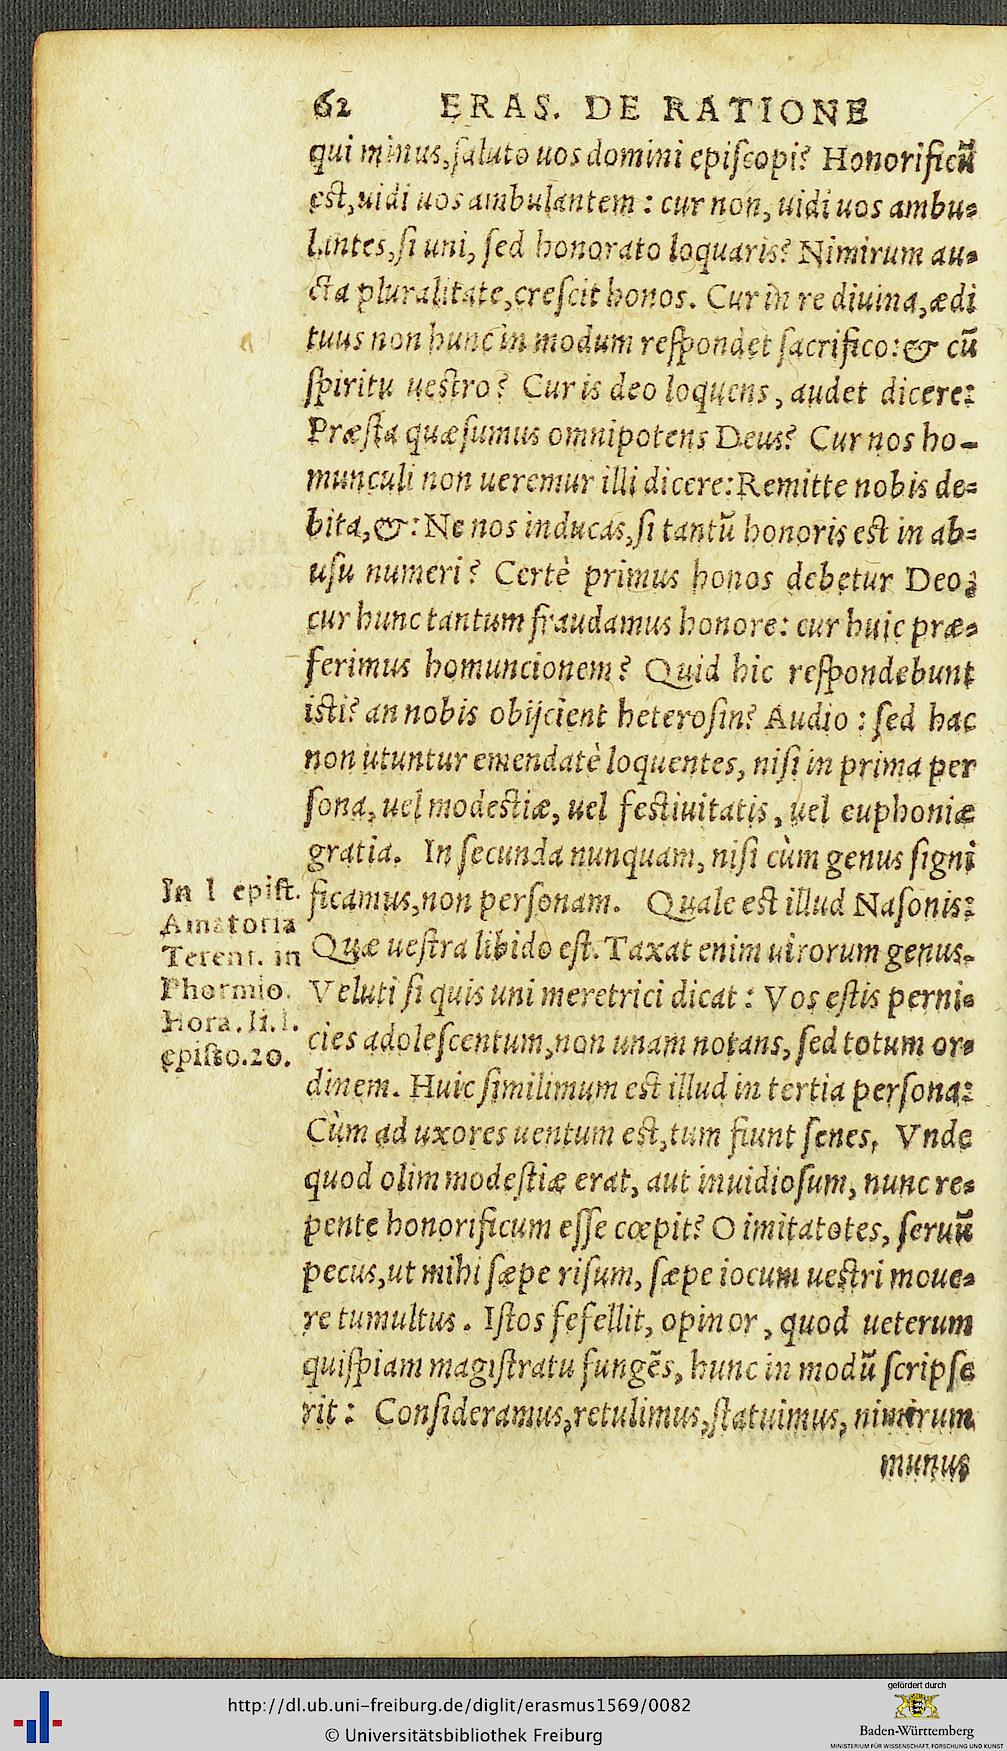 62 ERAS. DE RATIONE
qui minus, ſaluto uos domini epiſcopi? Honorificũ
eſt, uidi uos ambulantem: cur non, uidi uos ambu-
lantes, ſi uni, ſed honorato loquaris? Nimirum au-
cta pluralitate, creſcit honos. Cur in re diuina, ædi
tuus non hunc in modum reſpondet ſacrifico: & cũ
ſpiritu ueſtro? Cur is deo loquens, audet dicere:
Præſta quæſumus omnipotens Deus? Cur nos ho-
munculi non ueremur illi dicere: Remitte nobis de-
bita, &: Ne nos inducas, ſi tantũ honoris eſt in ab-
uſu numeri? Certè primus honos debetur Deo;
cur hunc tantum fraudamus honore: cur huic præ-
ferimus homuncionem? Quid hic reſpondebunt
iſti? an nobis obijcient heteroſin? Audio: ſed hac
non utuntur emendatè loquentes, niſi in prima per
ſona, uel modeſtiæ, uel feſtiuitatis, uel euphoniæ
gratia. In ſecunda nunquam, niſi cùm genus ſigni
ficamus, non perſonam. Quale eſt illud Naſonis:
Quæ ueſtra libido eſt. Taxat enim uirorum genus.
Veluti ſi quis uni meretrici dicat: Vos eſtis perni-
cies adoleſcentum, non unam notans, ſed totum or-
dinem. Huic ſimilimum eſt illud in tertia perſona:
Cùm ad uxores uentum eſt, tum fiunt ſenes, Vnde
quod olim modeſtiæ erat, aut inuidioſum, nunc re-
pente honorificum eſſe cœpit? O imitatotes, ſeruũ
pecus, ut mihi ſæpe riſum, ſæpe iocum ueſtri moue-
re tumultus. Iſtos fefellit, opinor, quod ueterum
quiſpiam magiſtratu fungẽs, hunc in modũ ſcripſe
rit: Conſideramus, retulimus, ſtatuimus, nimirum
munus
In l epiſt.
Amatoria
Terent. in
Phormio.
Hora. li. l.
epiſto. 20.
http://dl.ub.uni-freiburg.de/diglit/erasmus1569/0082
© Universitätsbibliothek Freiburg
gefördert durch
Baden-Württemberg
MINISTERIUM FÜR WISSENSCHAFT, FORSCHUNG UND KUNST